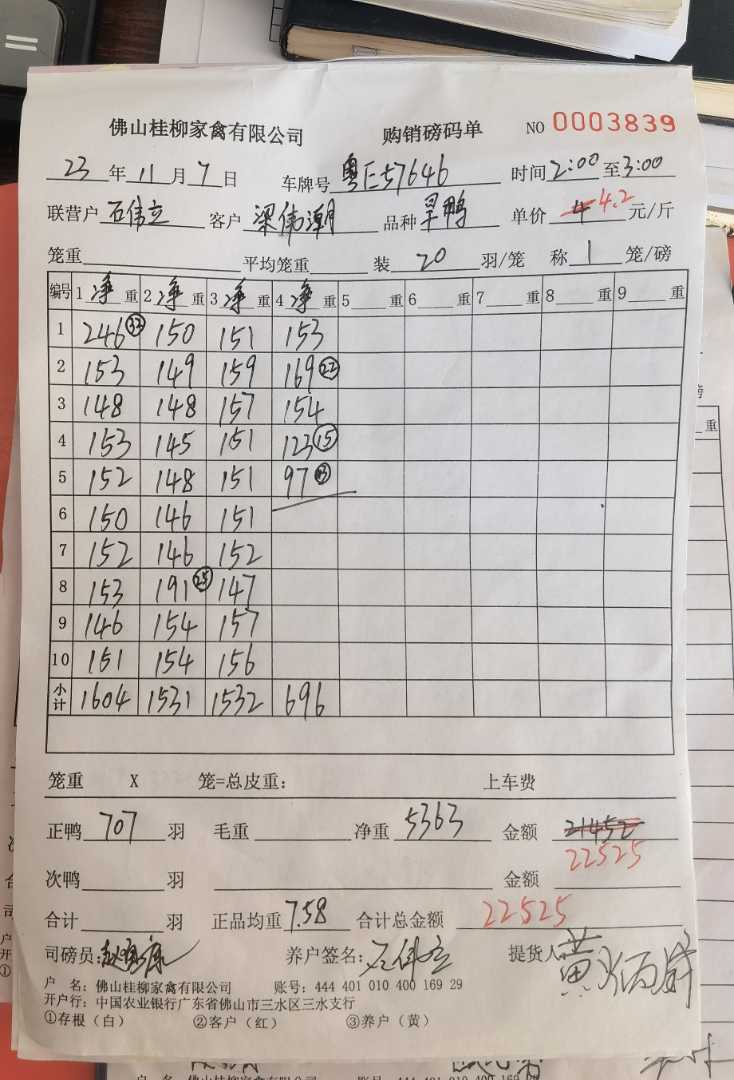 佛山桂柳家禽有限公司 购销磅码单 NO 0003839
23 年 11 月 7 日 车牌号 粤E57646 时间 2:00 至 3:00
联营户 石伟立 客户 梁伟潮 品种 旱鸭 单价 4 4.2 元/斤
笼重 平均笼重 装 20 羽/笼 称 1 笼/磅
编号 1 净 重 2 净 重 3 净 重 4 净 重 5 重 6 重 7 重 8 重 9 重
1 246 150 151 153
2 153 149 159 169 22
3 148 148 157 154
4 153 145 151 123 15
5 152 148 151 97 13
6 150 146 151
7 152 146 152
8 153 191 25 147
9 146 154 157
10 151 154 156
小计 1604 1531 1532 696
笼重 X 笼=总皮重: 上车费
正鸭 707 羽 毛重 净重 5363 金额 21452
22525
次鸭 羽 金额
合计 羽 正品均重 7.58 合计总金额 22525
司磅员: 养户签名: 石伟立 提货人
户 名: 佛山桂柳家禽有限公司 账号: 444 401 010 400 169 29
开户行: 中国农业银行广东省佛山市三水区三水支行
①存根（白） ②客户（红） ③养户（黄）